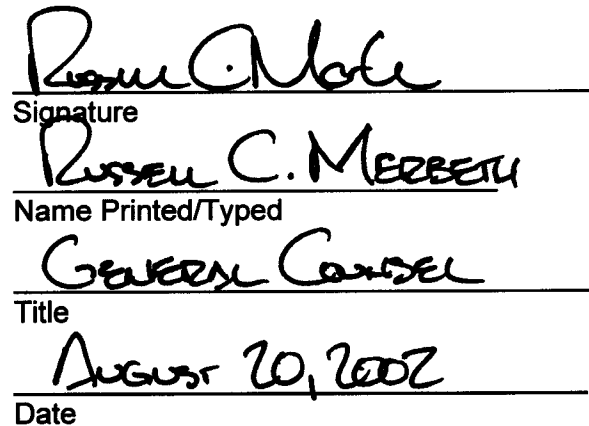 Russell C. Merbeth
Signature
RUSSELL C. MERBETH
Name Printed/Typed
GENERAL COUNSEL
Title
AUGUST 20, 2002
Date